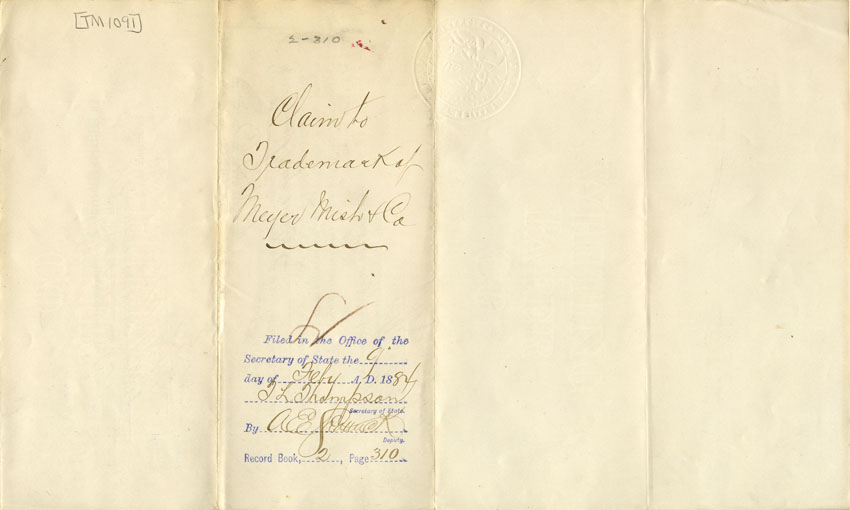 [TM 1091]
2-310
Claim to
Trademark of
Meyer Mish & Co
Filed in the Office of the
Secretary of State the 9
day of Feby A. D. 1884
T L Thompson
Secretary of State.
By A E
Deputy.
Record Book, 2, Page 310